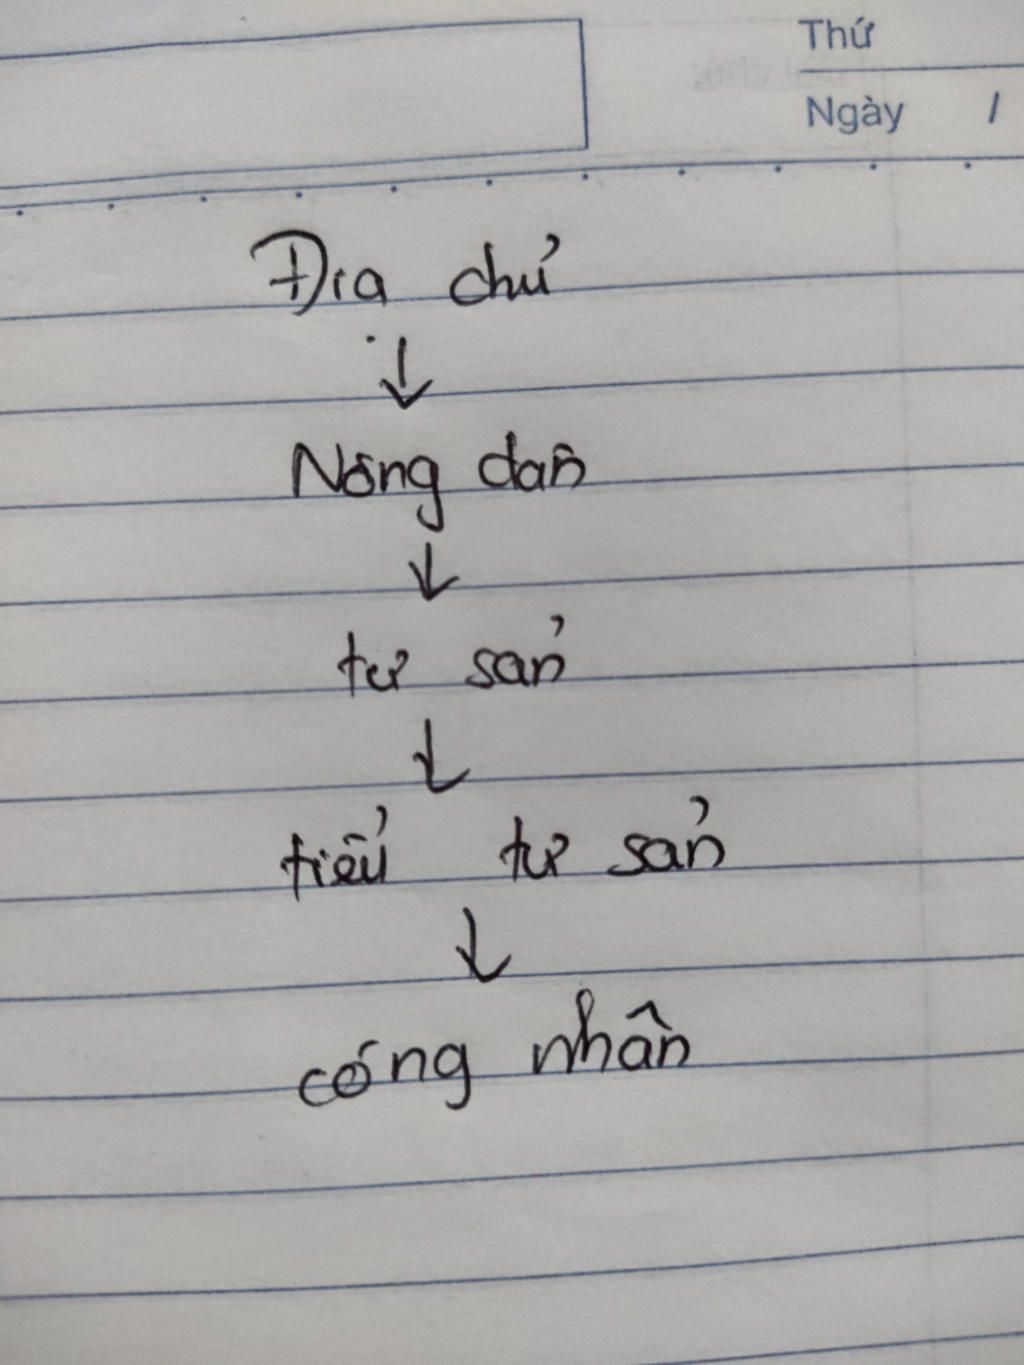 Thứ
Ngày /
Địa chủ
↓
Nông dân
↓
tư sản
↓
tiểu tư sản
↓
công nhân